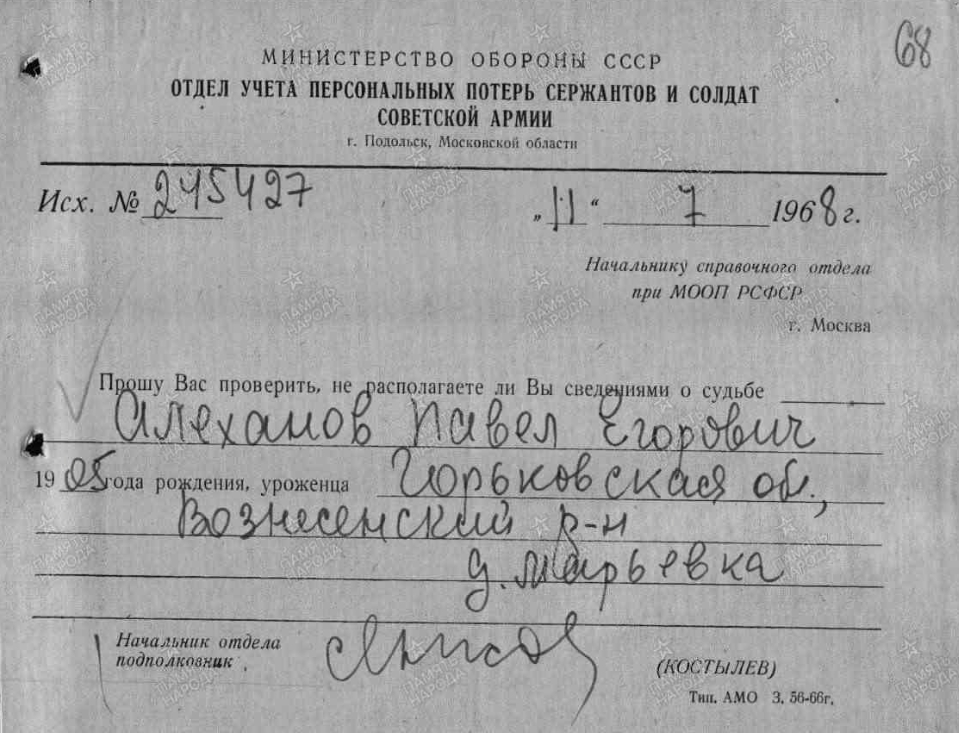 68
МИНИСТЕРСТВО ОБОРОНЫ СССР
ОТДЕЛ УЧЕТА ПЕРСОНАЛЬНЫХ ПОТЕРЬ СЕРЖАНТОВ И СОЛДАТ
СОВЕТСКОЙ АРМИИ
г. Подольск, Московской области
Исх. № 245427 „11“ 7 1968 г.
Начальнику справочного отдела
при МООП РСФСР
г. Москва
Прошу Вас проверить, не располагаете ли Вы сведениями о судьбе
Алеханов Павел Егорович
1905 года рождения, уроженца Горьковская обл.,
Вознесенский р-н
д. Марьевка
Начальник отдела
подполковник
(КОСТЫЛЕВ)
Тип. АМО З. 56-66г.